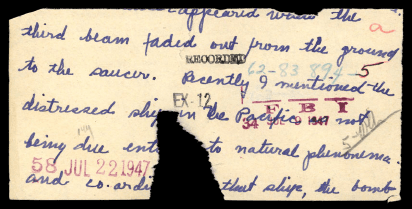 appeared when the
third beam faded out from the ground
RECORDED
62-83 894-5
to the saucer. Recently I mentioned the
EX-12
F B I
distressed ship in the Pacific not
34 9 1947
being due to natural phenomena
58 JUL 22 1947
and co. that ship, the bomb